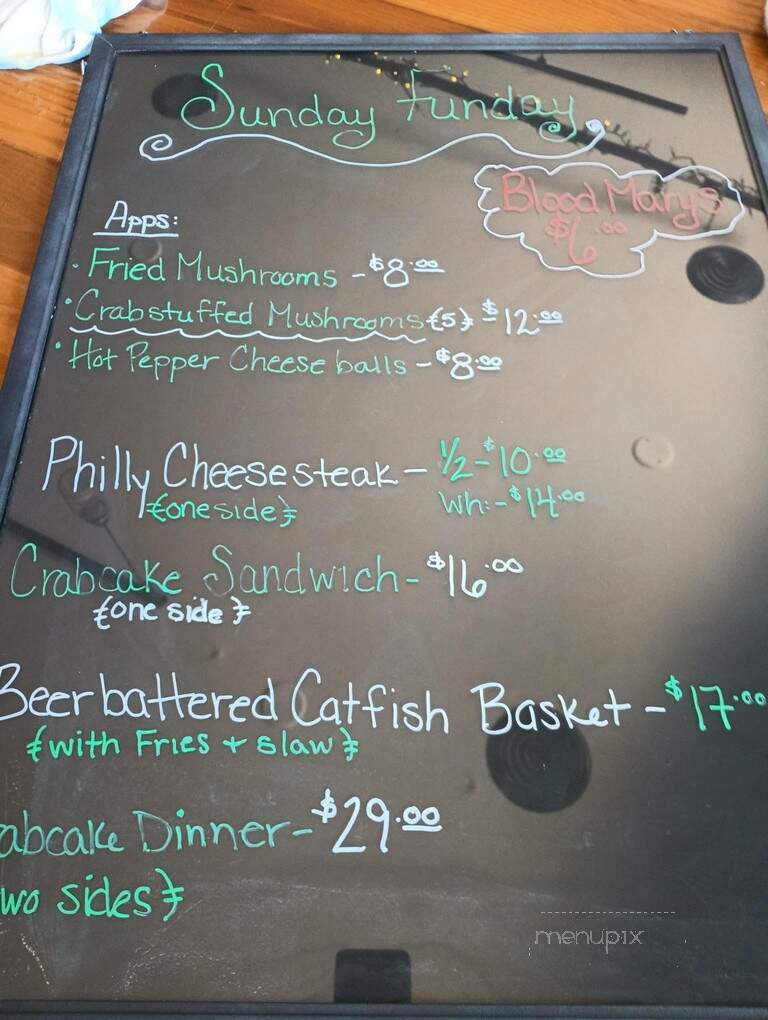 Sunday Funday
Blood Marys
$6.00
Apps:
· Fried Mushrooms - $8.00
· Crabstuffed Mushrooms {5} $12.00
· Hot Pepper Cheese balls - $8.00
Philly Cheesesteak - 1/2 - $10.00
{one side} Wh: - $14.00
Crabcake Sandwich - $16.00
{one side}
Beer battered Catfish Basket - $17.00
{with Fries + slaw}
abcake Dinner - $29.00
wo sides}
menupix